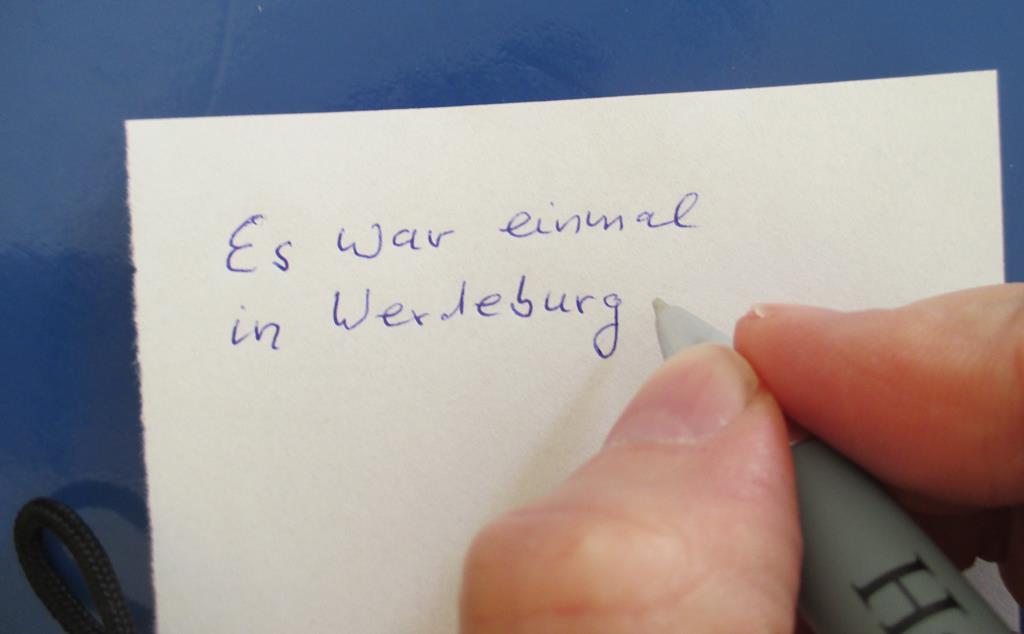 Es war einmal
in Werdeburg
H